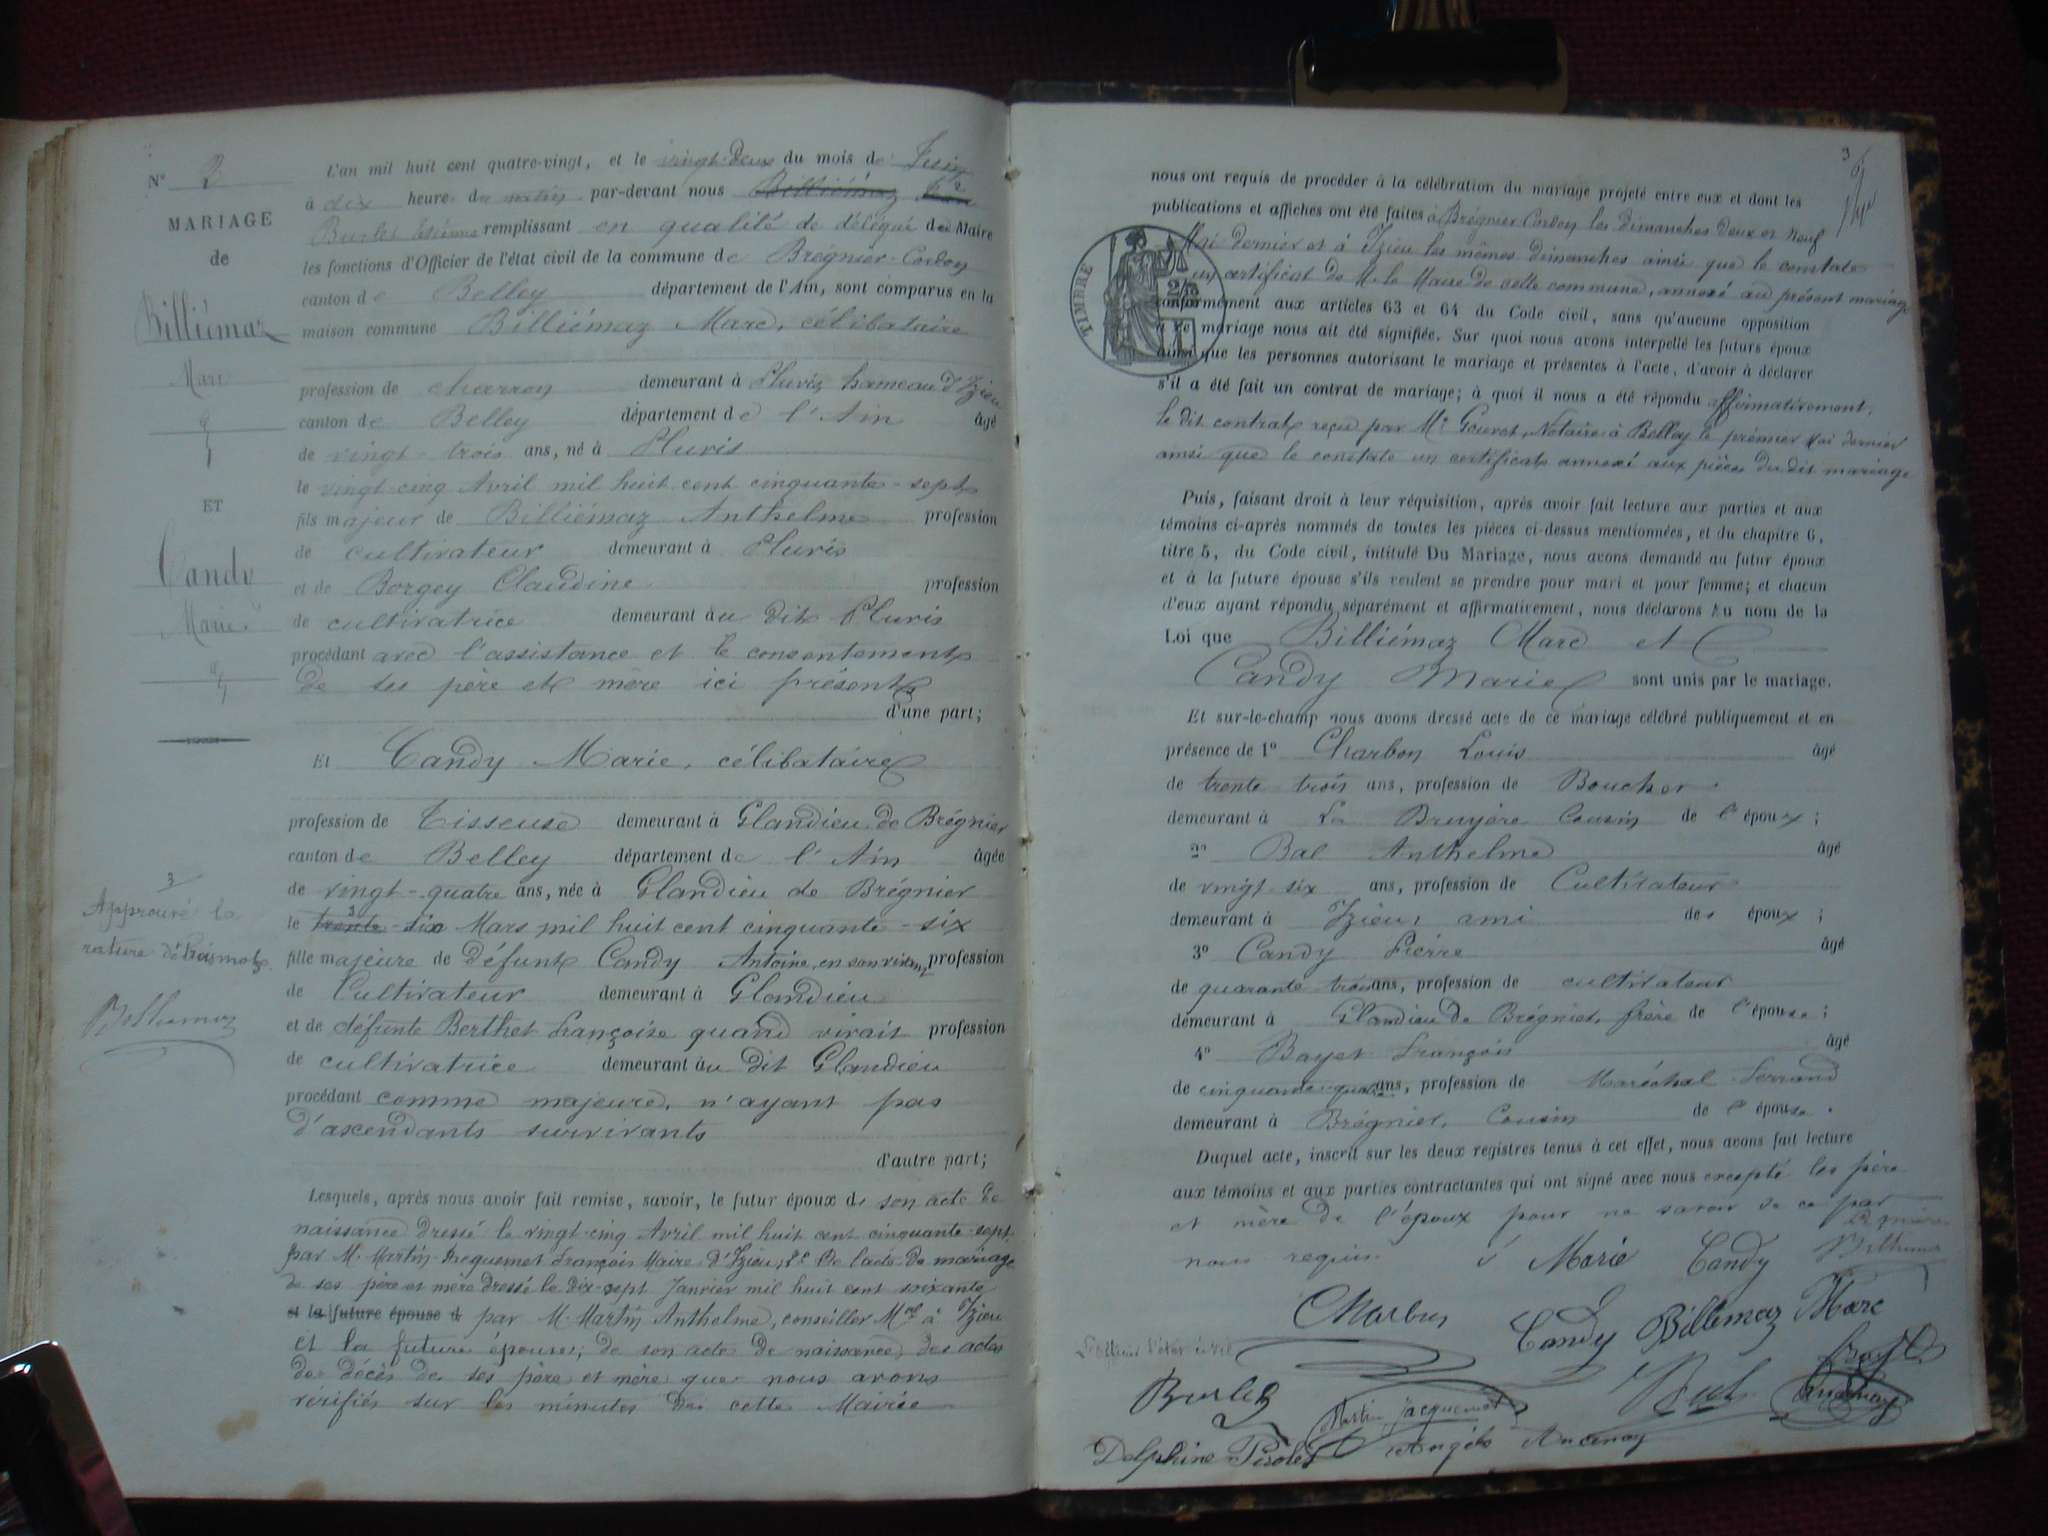 N° 2
MARIAGE
de
Billiémaz
Marc
ET
Candy
Marie
3
Approuvé la
rature de trois mots
Billiemaz
L'an mil huit cent quatre-vingt, et le vingt-deux du mois de Juin
à dix heure du matin par-devant nous Billiémaz
Burlet remplissant en qualité de délégué du Maire
les fonctions d'Officier de l'état civil de la commune de Brégnier-Cordon
canton de Belley département de l'Ain, sont comparus en la
maison commune Billiémaz Marc, célibataire
profession de charron demeurant à Pluvis hameau d'Izieu
canton de Belley département de l'Ain âgé
de vingt-trois ans, né à Pluvis
le vingt-cinq Avril mil huit cent cinquante-sept
fils majeur de Billiémaz Anthelme profession
de cultivateur demeurant à Pluvis
et de Borgey Claudine profession
de cultivatrice demeurant au dit Pluvis
procédant avec l'assistance et le consentement
de ses père et mère ici présents
d'une part;
Et Candy Marie, célibataire
profession de Tisseuse demeurant à Glandieu de Brégnier
canton de Belley département de l'Ain âgée
de vingt-quatre ans, née à Glandieu de Brégnier
le trente-six Mars mil huit cent cinquante-six
fille majeure de défunt Candy Antoine, en son vivant profession
de Cultivateur demeurant à Glandieu
et de défunte Berthet Françoise quand vivait profession
de cultivatrice demeurant au dit Glandieu
procédant comme majeure, n'ayant pas
d'ascendants survivants
d'autre part;
Lesquels, après nous avoir fait remise, savoir, le futur époux de son acte de
naissance dressé le vingt-cinq Avril mil huit cent cinquante-sept
par M. Martin François Maire d'Izieu, 2° De l'acte de mariage
de ses père et mère dressé le dix-sept Janvier mil huit cent soixante
et la future épouse d par M. Martin Anthelme, conseiller Mal à Izieu
et la future épouse, de son acte de naissance, des actes
de décès de ses père et mère que nous avons
vérifiés sur les minutes de cette Mairie
3
nous ont requis de procéder à la célébration du mariage projeté entre eux et dont les
publications et affiches ont été faites à Brégnier-Cordon les dimanches deux et neuf
Mai dernier et à Izieu les mêmes dimanches ainsi que le constate
un certificat de M. le Maire de cette commune, annexé au présent mariage
TIMBRE
conformément aux articles 63 et 64 du Code civil, sans qu'aucune opposition
à ce mariage nous ait été signifiée. Sur quoi nous avons interpellé les futurs époux
ainsi que les personnes autorisant le mariage et présentes à l'acte, d'avoir à déclarer
s'il a été fait un contrat de mariage; à quoi il nous a été répondu affirmativement,
le dit contrat reçu par Me Gourot, Notaire à Belley le premier Mai dernier
ainsi que le constate un certificat annexé aux pièces du dit mariage
Puis, faisant droit à leur réquisition, après avoir fait lecture aux parties et aux
témoins ci-après nommés de toutes les pièces ci-dessus mentionnées, et du chapitre 6,
titre 5, du Code civil, intitulé Du Mariage, nous avons demandé au futur époux
et à la future épouse s'ils veulent se prendre pour mari et pour femme; et chacun
d'eux ayant répondu séparément et affirmativement, nous déclarons au nom de la
Loi que Billiémaz Marc et
Candy Marie sont unis par le mariage.
Et sur-le-champ nous avons dressé acte de ce mariage célébré publiquement et en
présence de 1° Charbon Louis âgé
de trente trois ans, profession de Boucher
demeurant à La Bruyère Cousin de l'époux;
2° Bal Anthelme âgé
de vingt-six ans, profession de Cultivateur
demeurant à Izieu, ami des époux;
3° Candy Pierre âgé
de quarante trois ans, profession de cultivateur
demeurant à Glandieu de Brégnier, frère de l'épouse;
4° Bayet François âgé
de cinquante-quatre ans, profession de Maréchal-Ferrand
demeurant à Brégnier, Cousin de l'épouse.
Duquel acte, inscrit sur les deux registres tenus à cet effet, nous avons fait lecture
aux témoins et aux parties contractantes qui ont signé avec nous excepté les père
et mère de l'époux pour ne savoir de ce par
nous requis.
Marie Candy
Charbon
Candy Billiemaz Marc
L'officier d'état civil
Burlet
Martin Jacquemet
Delphine Pirolet Angèle Ancenay